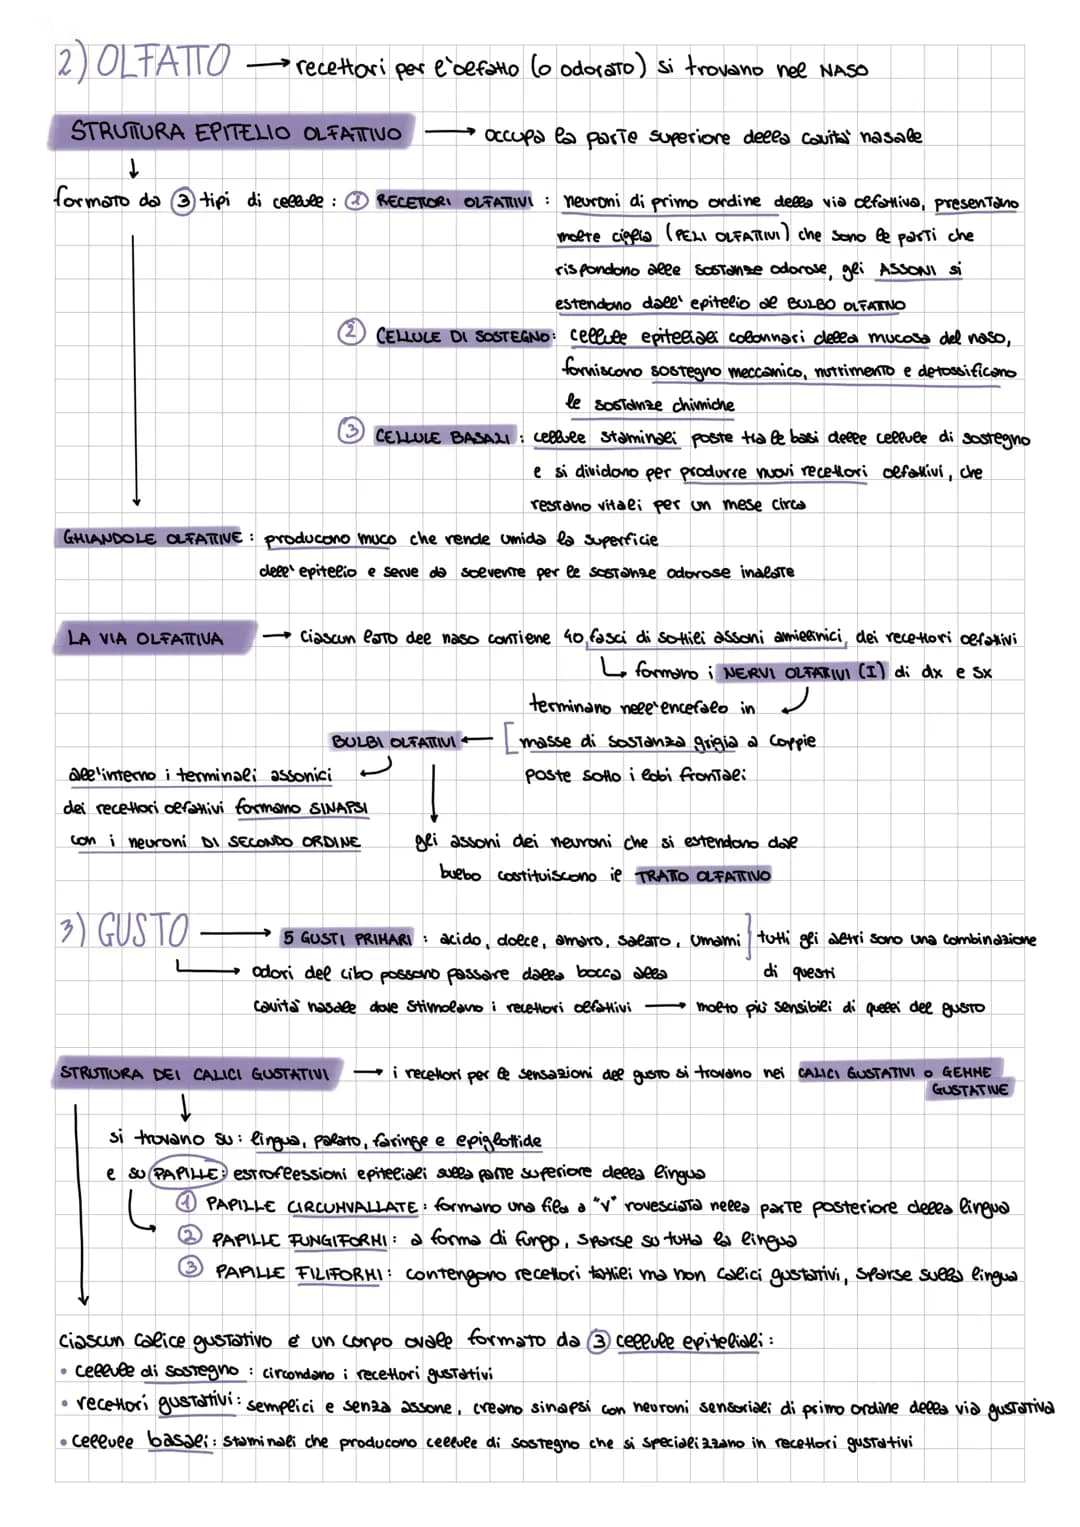 2) OLFATTO → recettori per l'olfatto (o odorato) si trovano nel NASO
STRUTTURA EPITELIO OLFATTIVO → occupa la parte superiore della cavità nasale
formato da 3 tipi di cellule : 1 RECETTORI OLFATTIVI : neuroni di primo ordine della via olfattiva, presentano
molte ciglia (PELI OLFATTIVI) che sono le parti che
rispondono alle sostanze odorose, gli ASSONI si
estendono dall' epitelio al BULBO OLFATTIVO
2 CELLULE DI SOSTEGNO: cellule epiteliali colonnari della mucosa del naso,
forniscono sostegno meccanico, nutrimento e detossificano
le sostanze chimiche
3 CELLULE BASALI : cellule staminali poste tra le basi delle cellule di sostegno
e si dividono per produrre nuovi recettori olfattivi, che
restano vitali per un mese circa
GHIANDOLE OLFATTIVE : producono muco che rende umida la superficie
dell' epitelio e serve da solvente per le sostanze odorose inalate
LA VIA OLFATTIVA → ciascun lato del naso contiene 40 fasci di sottili assoni amielinici, dei recettori olfattivi
↳ formano i NERVI OLFATTIVI (I) di dx e sx
terminano nell'encefalo in
BULBI OLFATTIVI ← [masse di sostanza grigia a coppie
poste sotto i lobi frontali
all'interno i terminali assonici
dei recettori olfattivi formano SINAPSI
con i neuroni DI SECONDO ORDINE
gli assoni dei neuroni che si estendono dal
bulbo costituiscono il TRATTO OLFATTIVO
3) GUSTO → 5 GUSTI PRIMARI : acido, dolce, amaro, salato, umami ] tutti gli altri sono una combinazione
di questi
→ odori del cibo possono passare dalla bocca alla
cavità nasale dove stimolano i recettori olfattivi → molto più sensibili di quelli del gusto
STRUTTURA DEI CALICI GUSTATIVI → i recettori per le sensazioni del gusto si trovano nei CALICI GUSTATIVI o GEMME
GUSTATIVE
si trovano su : lingua, palato, faringe e epiglottide
e su PAPILLE: estroflessioni epiteliali sulla parte superiore della lingua
1 PAPILLE CIRCUMVALLATE : formano una fila a "V" rovesciata nella parte posteriore della lingua
2 PAPILLE FUNGIFORMI : a forma di fungo, sparse su tutta la lingua
3 PAPILLE FILIFORMI : contengono recettori tattili ma non calici gustativi, sparse sulla lingua
ciascun calice gustativo è un corpo ovale formato da 3 cellule epiteliali :
• cellule di sostegno : circondano i recettori gustativi
• recettori gustativi : semplici e senza assone, creano sinapsi con neuroni sensoriali di primo ordine della via gustativa
• cellule basali : staminali che producono cellule di sostegno che si specializzano in recettori gustativi